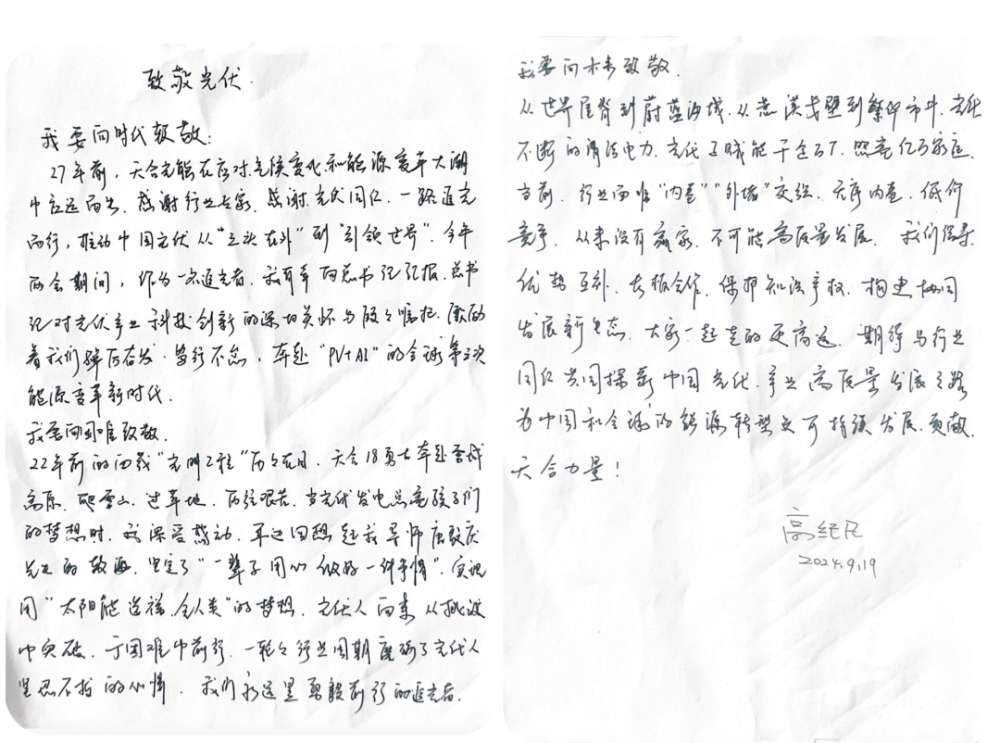 致敬光伏
我要向时代致敬:
27年前，天合光能在应对气候变化和能源变革大潮
中应运而生，感谢行业专家，感谢光伏同仁，一路追光
而行，推动中国光伏从“三头在外”到“引领世界”，今年
两会期间，作为一名追光者，我有幸向总书记汇报，总书
记对光伏产业科技创新的深切关怀与殷殷嘱托，激励
着我们踔厉奋发、笃行不怠，奔赴“PV+AI”的全球第三次
能源变革新时代。
我要向困难致敬，
22年前的西藏“光明工程”历历在目，天合18勇士奔赴雪域
高原，爬雪山、过草地，历经艰苦，当光伏发电点亮孩子们
的梦想时，我深受感动，耳边回想起我导师唐敖庆
先生的教诲，坚定了“一辈子用心做好一件事情”，实现
用“太阳能造福全人类”的梦想，光伏人向来从挑战
中突破，于困难中前行，一轮轮行业周期磨砺了光伏人
坚忍不拔的心性，我们永远是勇毅前行的追光者。
我要向未来致敬，
从世界屋脊到蔚蓝海域，从荒漠戈壁到繁华市井，光伏
不断的清洁电力，光伏了赋能千企万厂，照亮亿万家庭，
当前，行业面临“内卷”“外堵”交织，无序内卷，低价
竞争，从来没有赢家，不可能高质量发展，我们倡导
优势互补，专振合作，保护知识产权，构建协同
发展新生态，大家一起走的更高远，期待与行业
同仁共同探索中国光伏产业高质量发展之路
为中国和全球的能源转型与可持续发展，贡献
天合力量！
高纪凡
2024.9.19